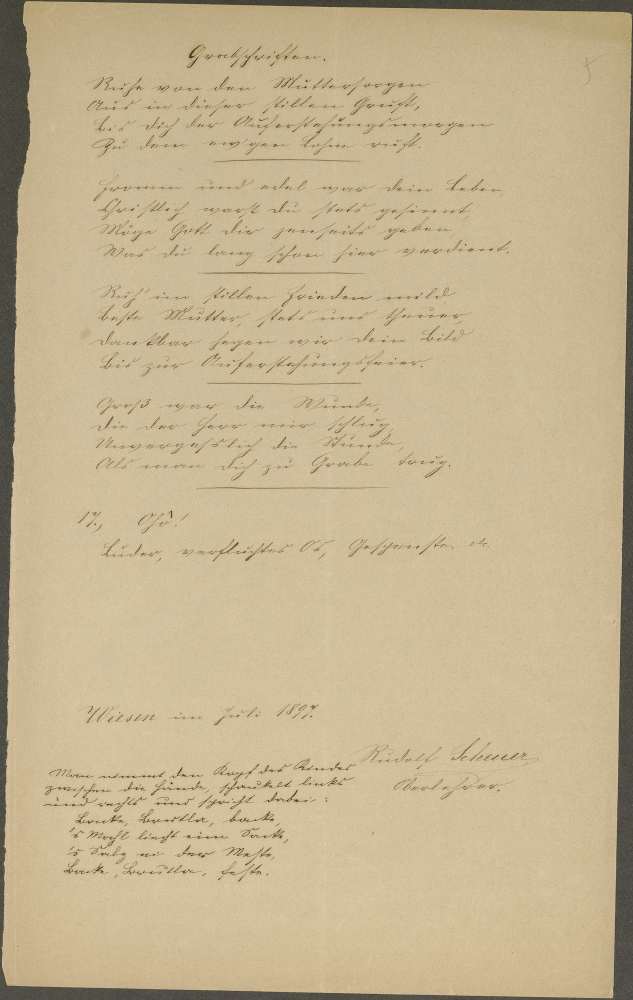 Grabschriften.
Ruhe von den Muttersorgen
Aus in dieser stillen Gruft,
Bis dich der Auferstehungsmorgen
Zu dem ew'gen Lohn ruft.
Fromm und edel war dein Leben,
Christlich warst du stets gesinnt,
Möge Gott dir jenseits geben,
Was du lang schon hier verdient.
Ruh' im stillen Frieden mild
Beste Mutter, stets uns theuer,
Dankbar segen wir dein Bild
Bis zur Auferstehungsfeier.
Groß war die Wunde,
Die der Herr mir schlug,
Unvergeßlich die Stunde,
Als man dich zu Grabe trug.
17.,
Luder, verfluchtes Os,
Wiesen im Juli 1897.
Rudolf Scheuer
Man nimmt den Kopf des Kindes
zwischen die Hände, schaukelt links
und rechts und spricht dabei:
Backe, Breutla, backe,
's Mahl liecht eim Sacke,
's Salz ei der Meste,
Backe, Breutla, feste.